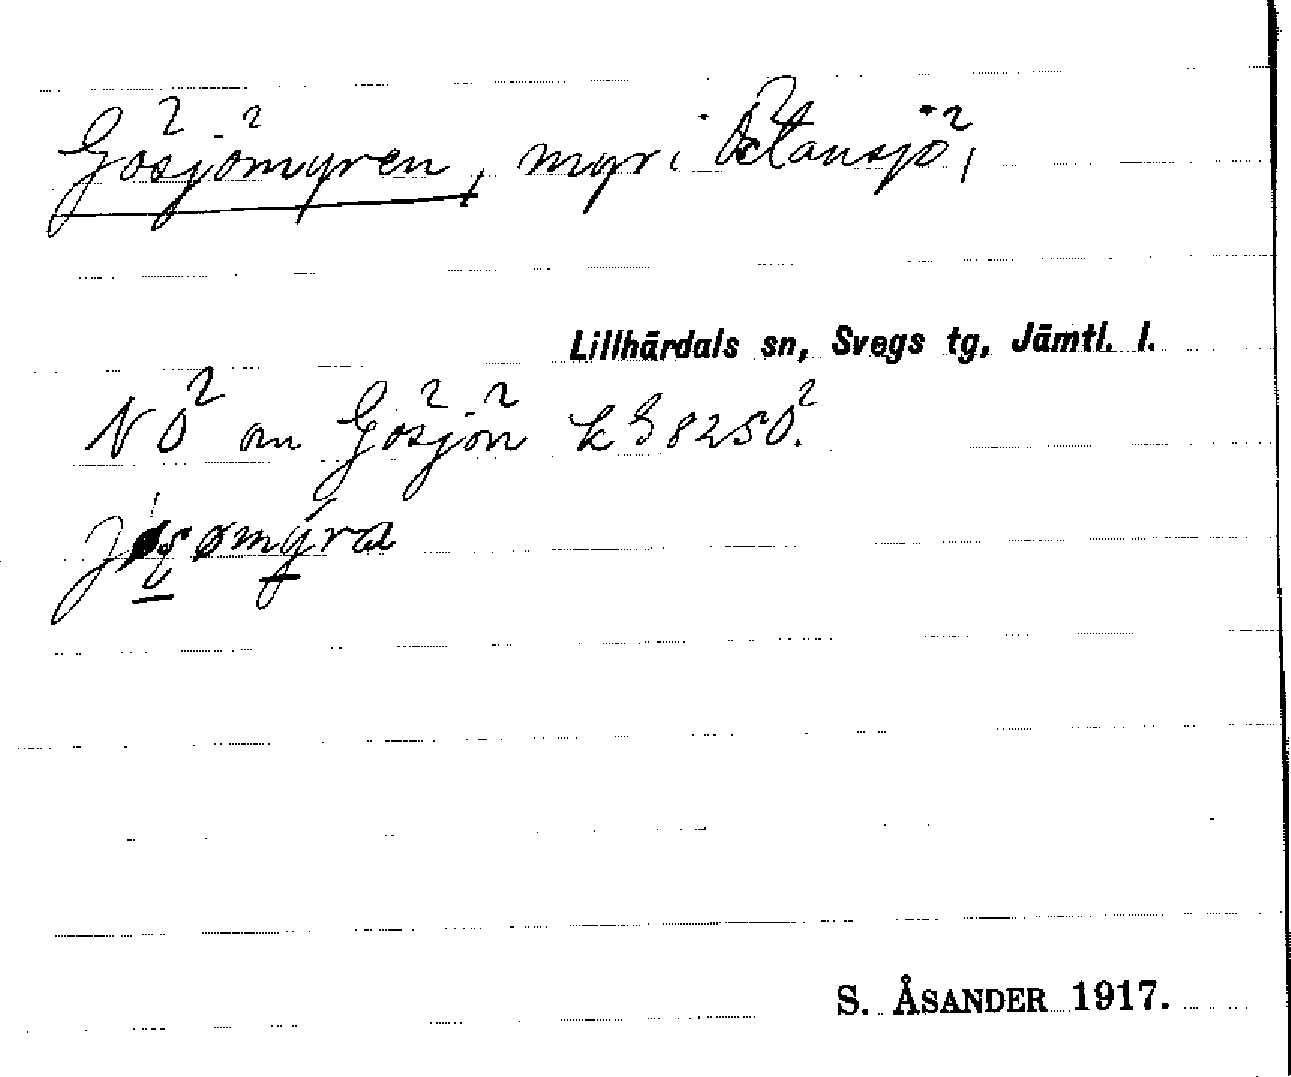 Gösjömyren, myr i Olansjö,
Lillhärdals sn, Svegs tg, Jämtl. l.
NO om Gösjön k G 8250.
S. ÅSANDER 1917.